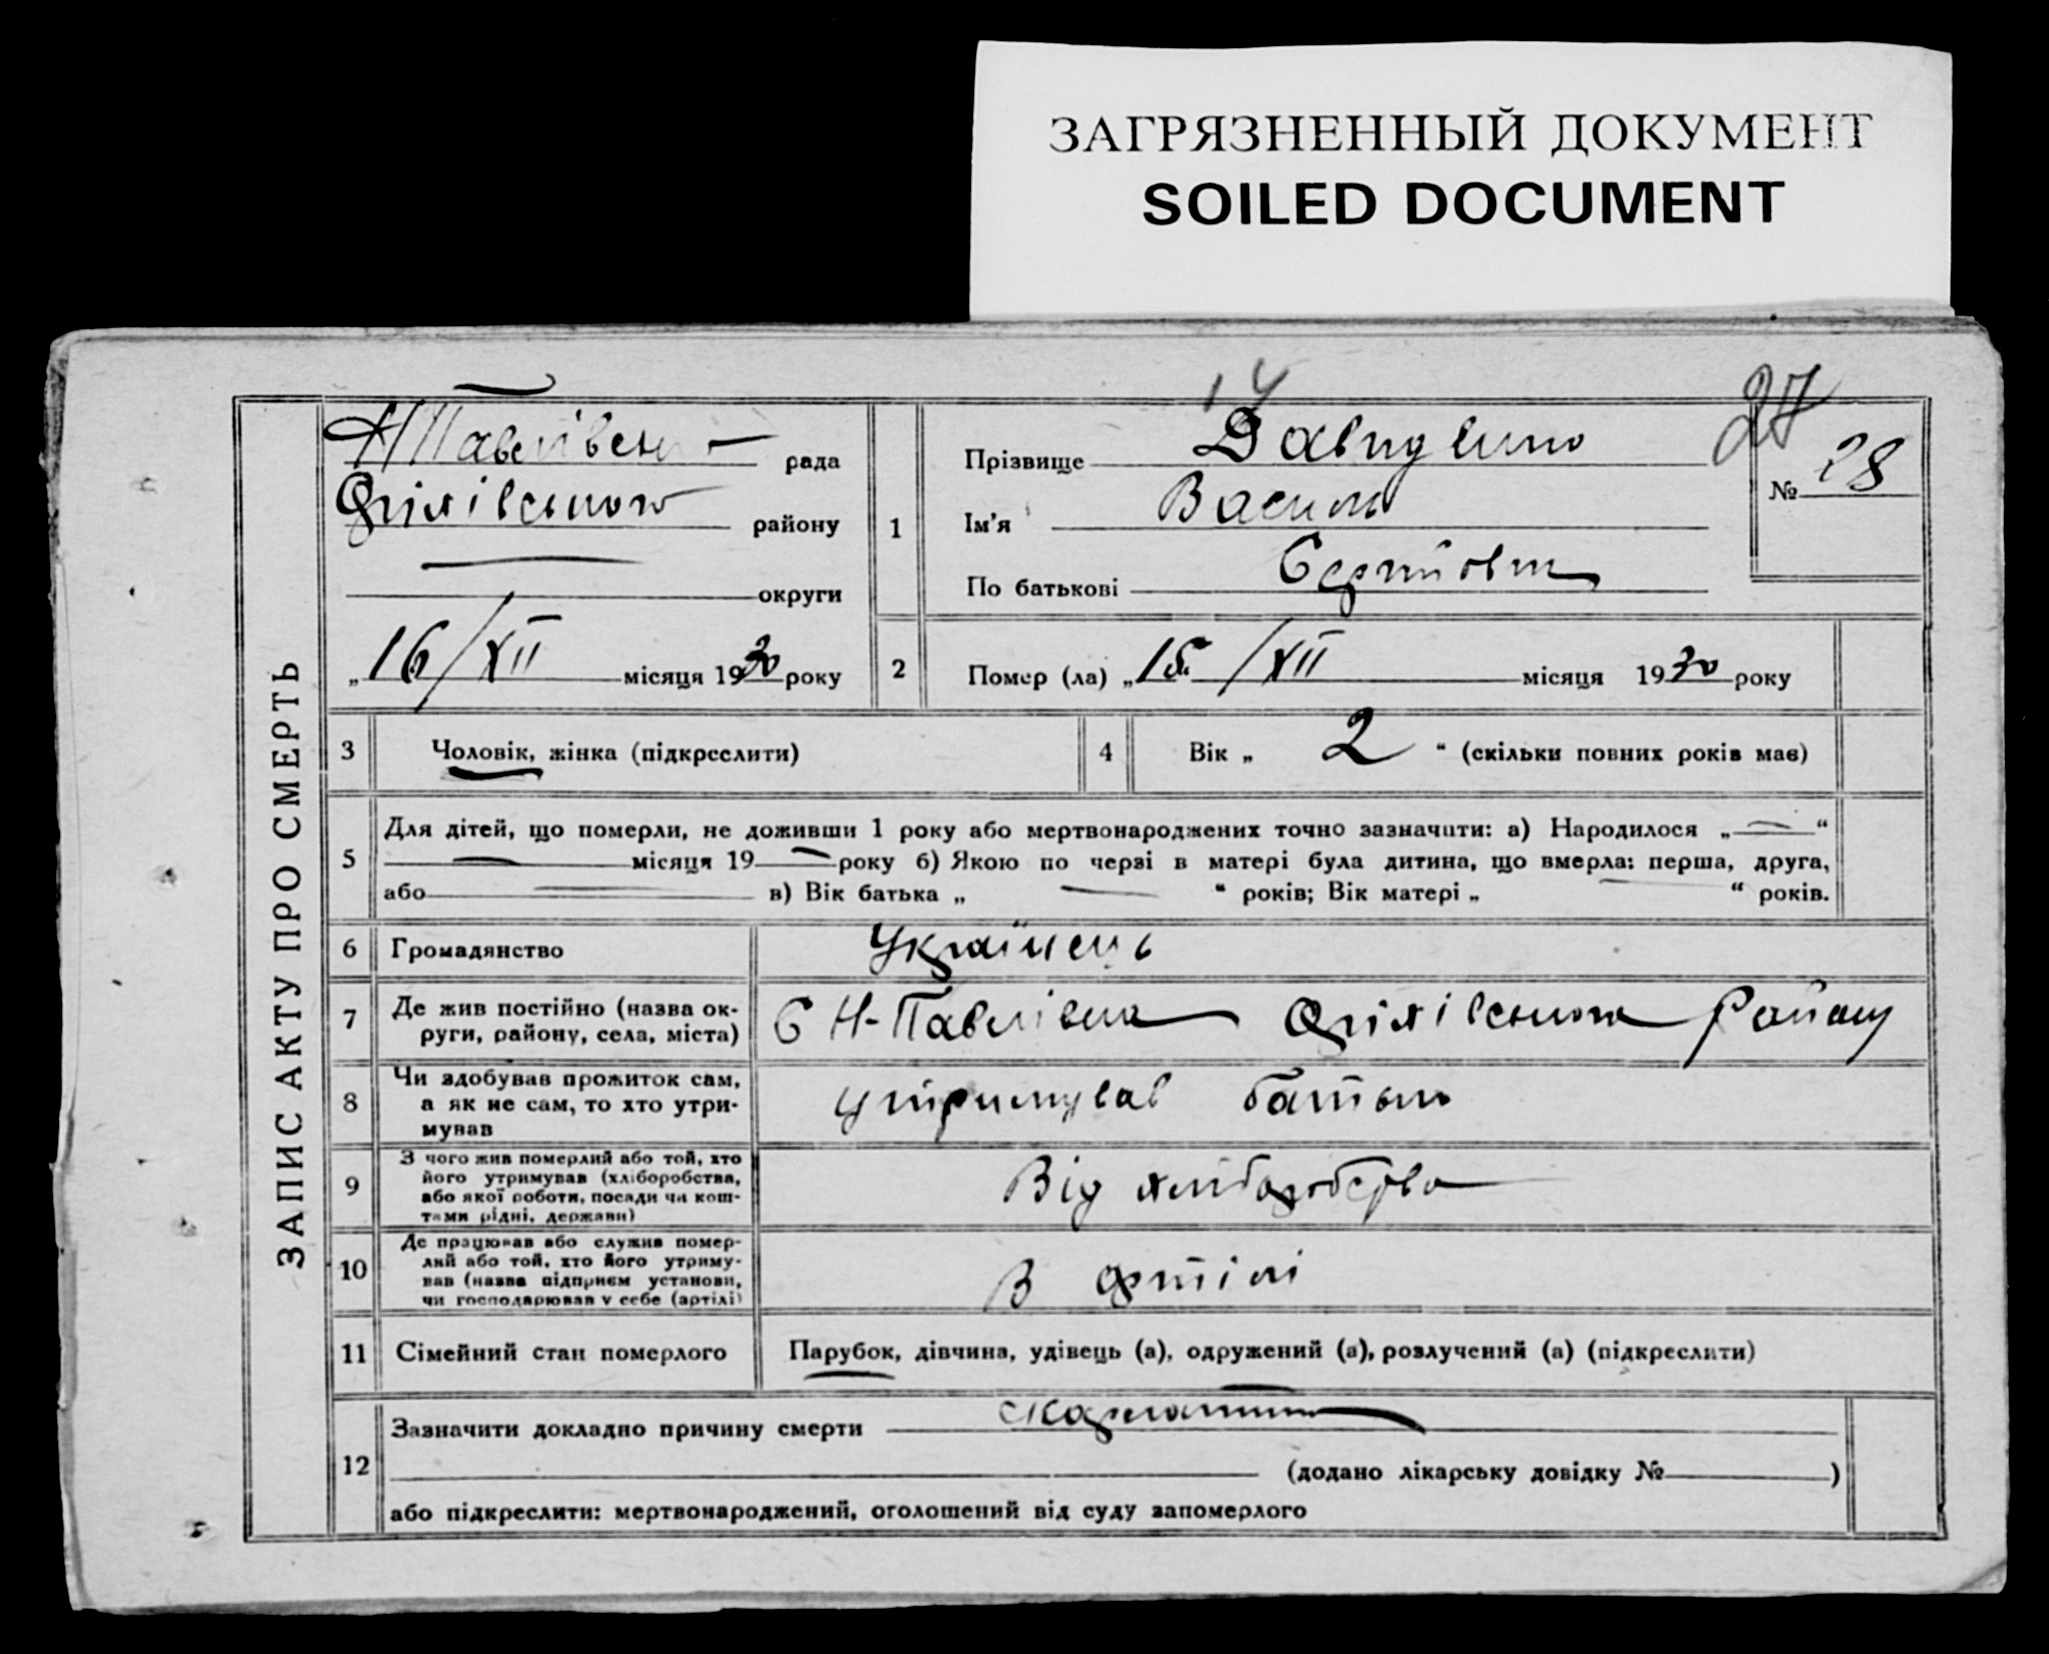 ЗАГРЯЗНЕННЫЙ ДОКУМЕНТ
SOILED DOCUMENT
ЗАПИС АКТУ ПРО СМЕРТЬ
рада
району
округи
„16/XII місяця 1930 року
14
27
1 Прізвище Давиденко
№ 28
Ім'я Василь
По батькові Сергійович
2 Помер (ла) „15" /XII місяця 1930 року
3 Чоловік, жінка (підкреслити)
4 Вік „ 2 “ (скільки повних років має)
5 Для дітей, що померли, не доживши 1 року або мертвонароджених точно зазначити: а) Народилося „ — “
— місяця 19 — року б) Якою по черзі в матері була дитина, що вмерла: перша, друга,
або — в) Вік батька „ — “ років; Вік матері „ “ років.
6 Громадянство Українець
7 Де жив постійно (назва ок-
руги, району, села, міста)
С Н-Павлівка Фріківського району
8 Чи здобував прожиток сам,
а як не сам, то хто утри-
мував
утримував батько
9 З чого жив померлий або той, хто
його утримував (хліборобства,
або якої роботи, посади чи кош-
тами рідні, держави)
Від хліборобства
10 Де працював або служив помер-
лий або той, хто його утриму-
вав (назва підприєм установи,
чи господарював у себе (артілі)
В артілі
11 Сімейний стан померлого Парубок, дівчина, удівець (а), одружений (а), розлучений (а) (підкреслити)
12 Зазначити докладно причину смерти скарлатина
(додано лікарську довідку № )
або підкреслити: мертвонароджений, оголошений від суду запомерлого